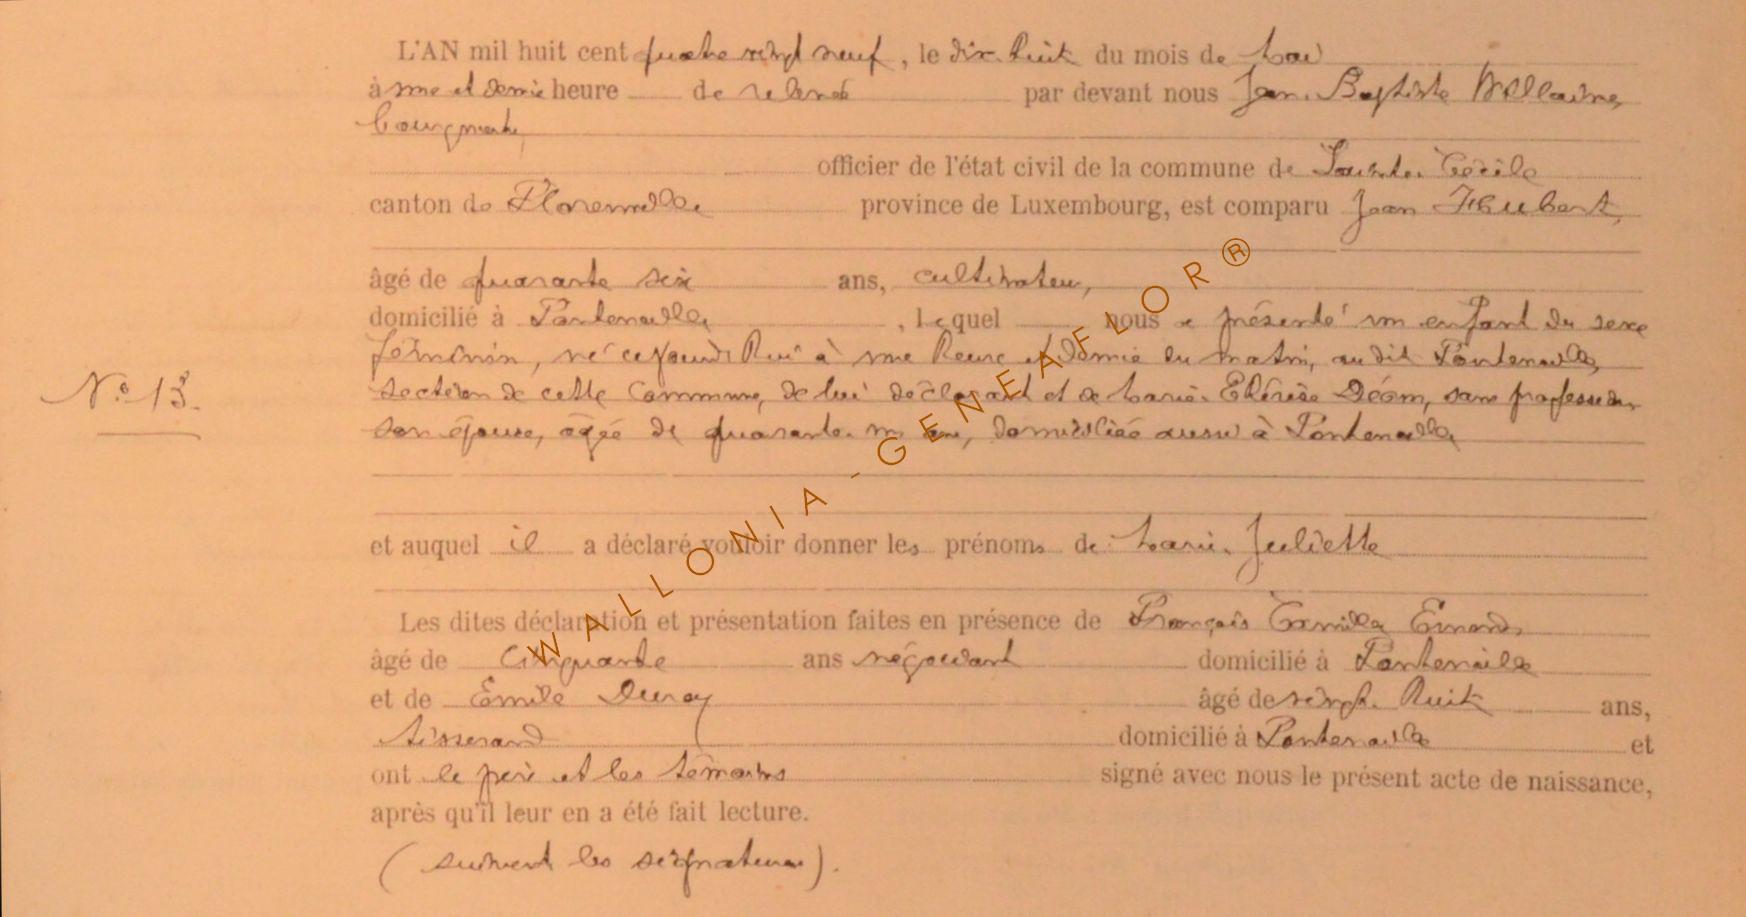 L'AN mil huit cent quatre vingt neuf, le dix-huit du mois de Mai
à une et demie heure de relevée par devant nous Jean-Baptiste Willaime,
Bourgmestre,
officier de l'état civil de la commune de Sainte-Cécile
canton de Florenville province de Luxembourg, est comparu Jean Hubert,
âgé de quarante six ans, cultivateur,
domicilié à Fontenoille, lequel nous a présenté un enfant du sexe
féminin, né cejourd'hui à une heure et demie du matin, au dit Fontenoille,
section de cette Commune, de lui déclarant et de Marie-Thérèse Déom, sans profession,
son épouse, âgée de quarante-un ans, domiciliée aussi à Fontenoille
N° 13.
et auquel il a déclaré vouloir donner les prénoms de Marie-Juliette
Les dites déclaration et présentation faites en présence de François Camille
âgé de Cinquante ans négociant domicilié à Fontenoille
et de Emile Duroy âgé de vingt-huit ans,
tisserand domicilié à Fontenoille et
ont le père et les témoins signé avec nous le présent acte de naissance,
après qu'il leur en a été fait lecture.
(suivent les signatures).
WALLONIA-GENEAFLOR®